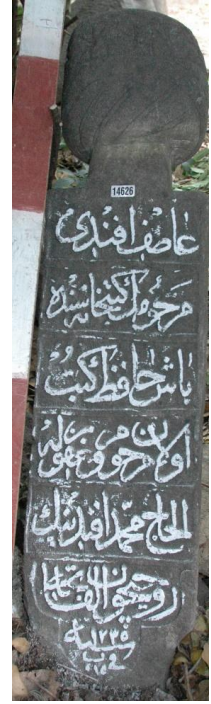 14626
عاطف افندی
مرحومك كتبخانه سنده
باش حافظ كتب
اولان مرحوم و مغفور له
الحاج محمد افندينك
روحيچون الفاتحه
سنه ١٢٣٥